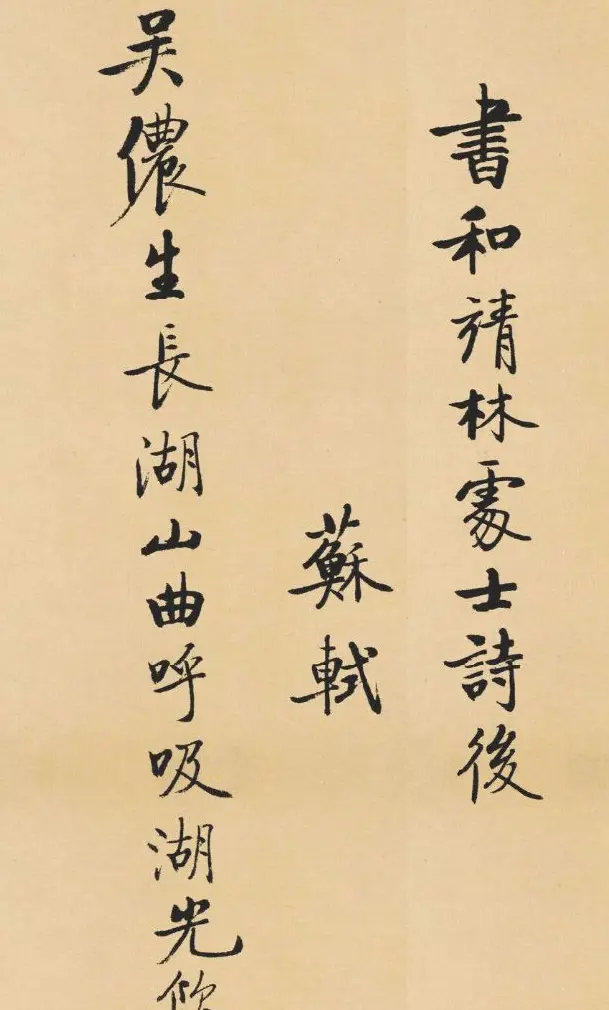 書和靖林處士詩後
蘇軾
吴儂生長湖山曲呼吸湖光